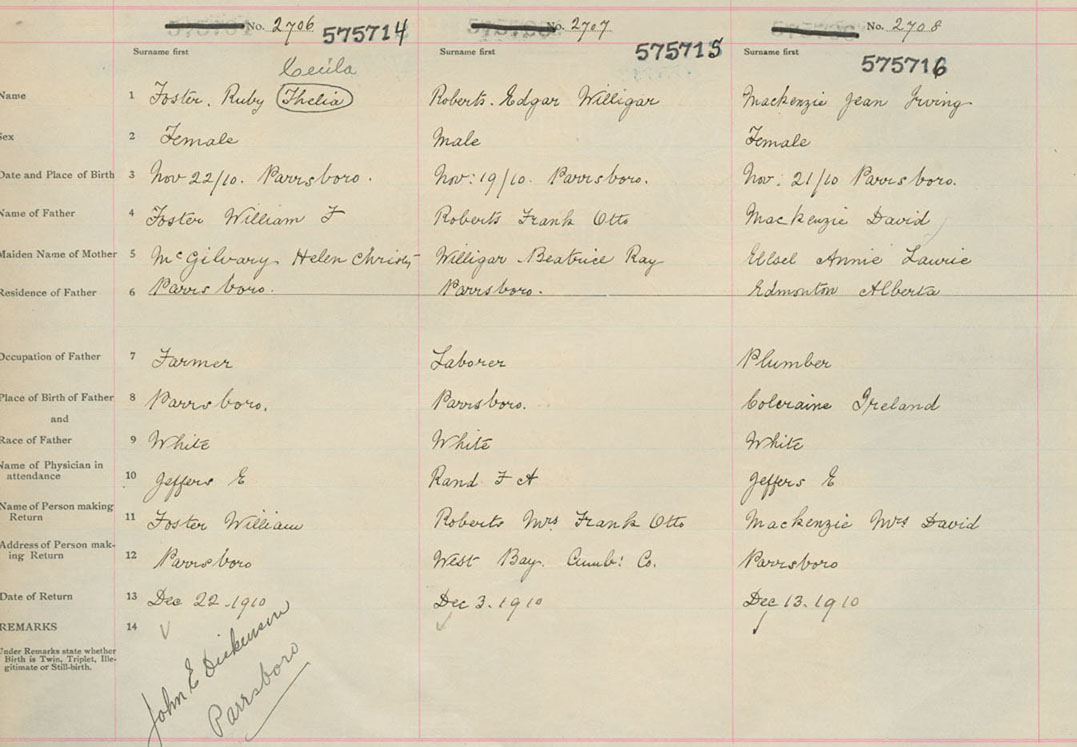 No. 2706 575714 No. 2707 575715 No. 2708 575716
Surname first Surname first Surname first
Cecila
Name 1 Foster. Ruby Thelia Roberts. Edgar Willigar Mackenzie Jean Irving
Sex 2 Female Male Female
Date and Place of Birth 3 Nov 22/10. Parrsboro. Nov: 19/10. Parrsboro. Nov: 21/10 Parrsboro.
Name of Father 4 Foster William F Roberts Frank Otto Mackenzie David
Maiden Name of Mother 5 McGilvary. Helen Christy Willigar Beatrice Ray Annie Laurie
Residence of Father 6 Parrsboro. Parrsboro. Edmonton Alberta
Occupation of Father 7 Farmer Laborer Plumber
Place of Birth of Father 8 Parrsboro. Parrsboro. Colcraine Ireland
and
Race of Father 9 White White White
Name of Physician in
attendance 10 Jeffers E Rand F A Jeffers E
Name of Person making
Return 11 Foster William Roberts Mrs Frank Otto Mackenzie Mrs David
Address of Person mak-
ing Return 12 Parrsboro West Bay. Cumb: Co. Parrsboro
Date of Return 13 Dec 22.1910 Dec 3.1910 Dec 13.1910
REMARKS 14
Under Remarks state whether
Birth is Twin, Triplet, Ille-
gitimate or Still-birth.
John E Dickenson
Parrsboro